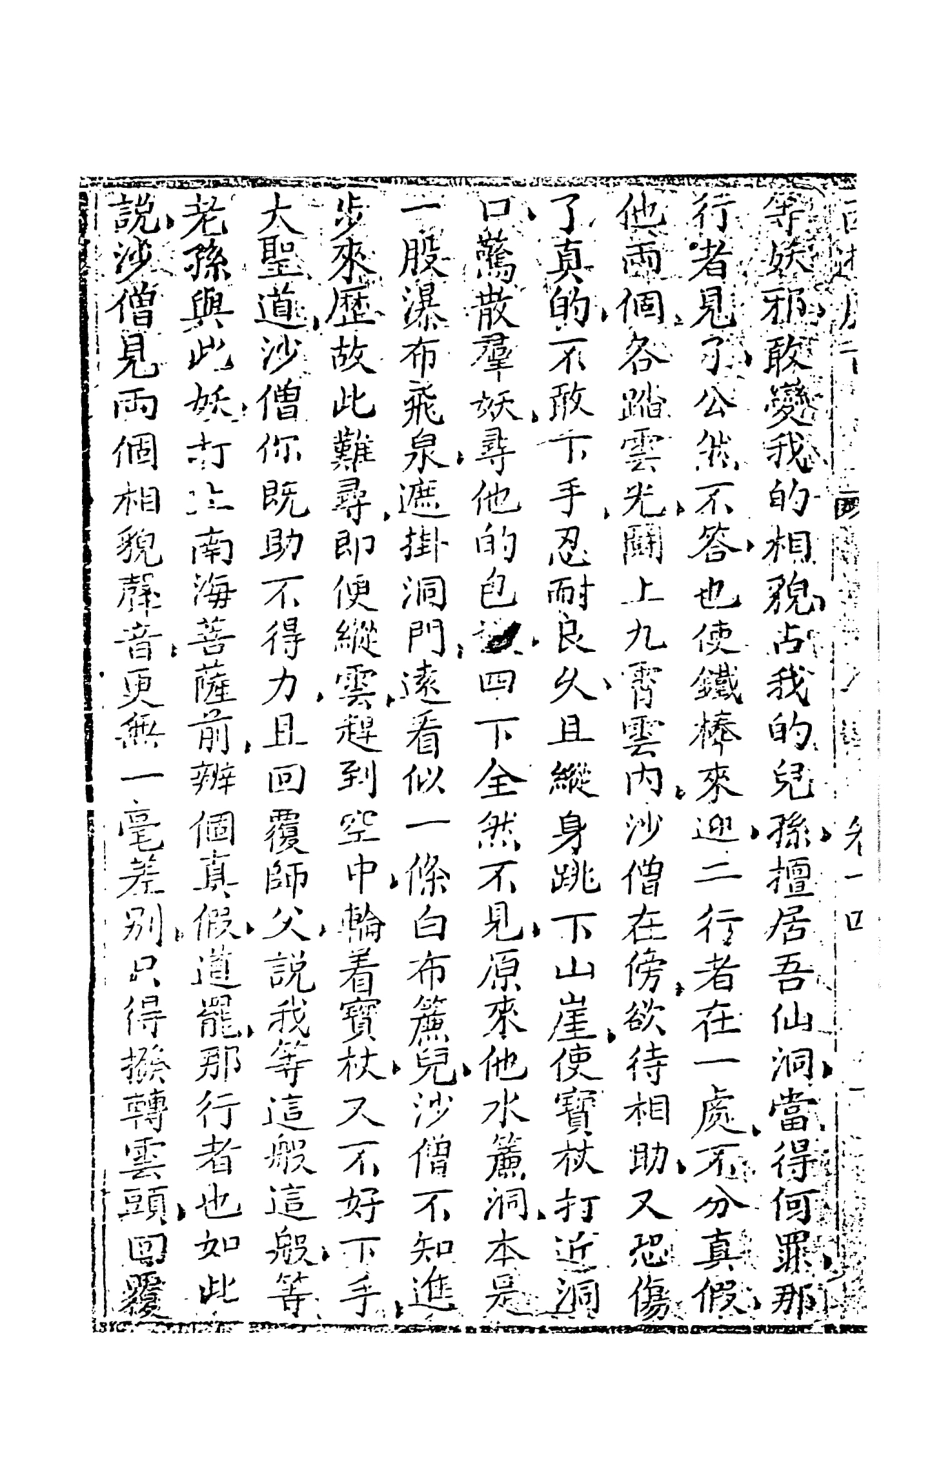 等妖邪敢變我的相貌占我的兒孫擅居吾仙洞當得何罪那
行者見了公然不答也使鐵棒來迎二行者在一處不分真假
他兩個各踏雲光鬭上九霄雲内沙僧在傍欲待相助又恐傷
了真的不敢下手忍耐良久且縱身跳下山崖使寶杖打近洞
口驚散羣妖尋他的包四下全然不見原來他水簾洞本是
一股瀑布飛泉遮掛洞門遠看似一條白布簾兒沙僧不知進
步來歷故此難尋即便縱雲趕到空中輪着寶杖又不好下手
大聖道沙僧你既助不得力且回覆師父說我等這般這般等
老孫與此妖打上南海菩薩前辨個真假道罷那行者也如此
說沙僧見兩個相貌聲音更無一毫差別只得撥轉雲頭回覆